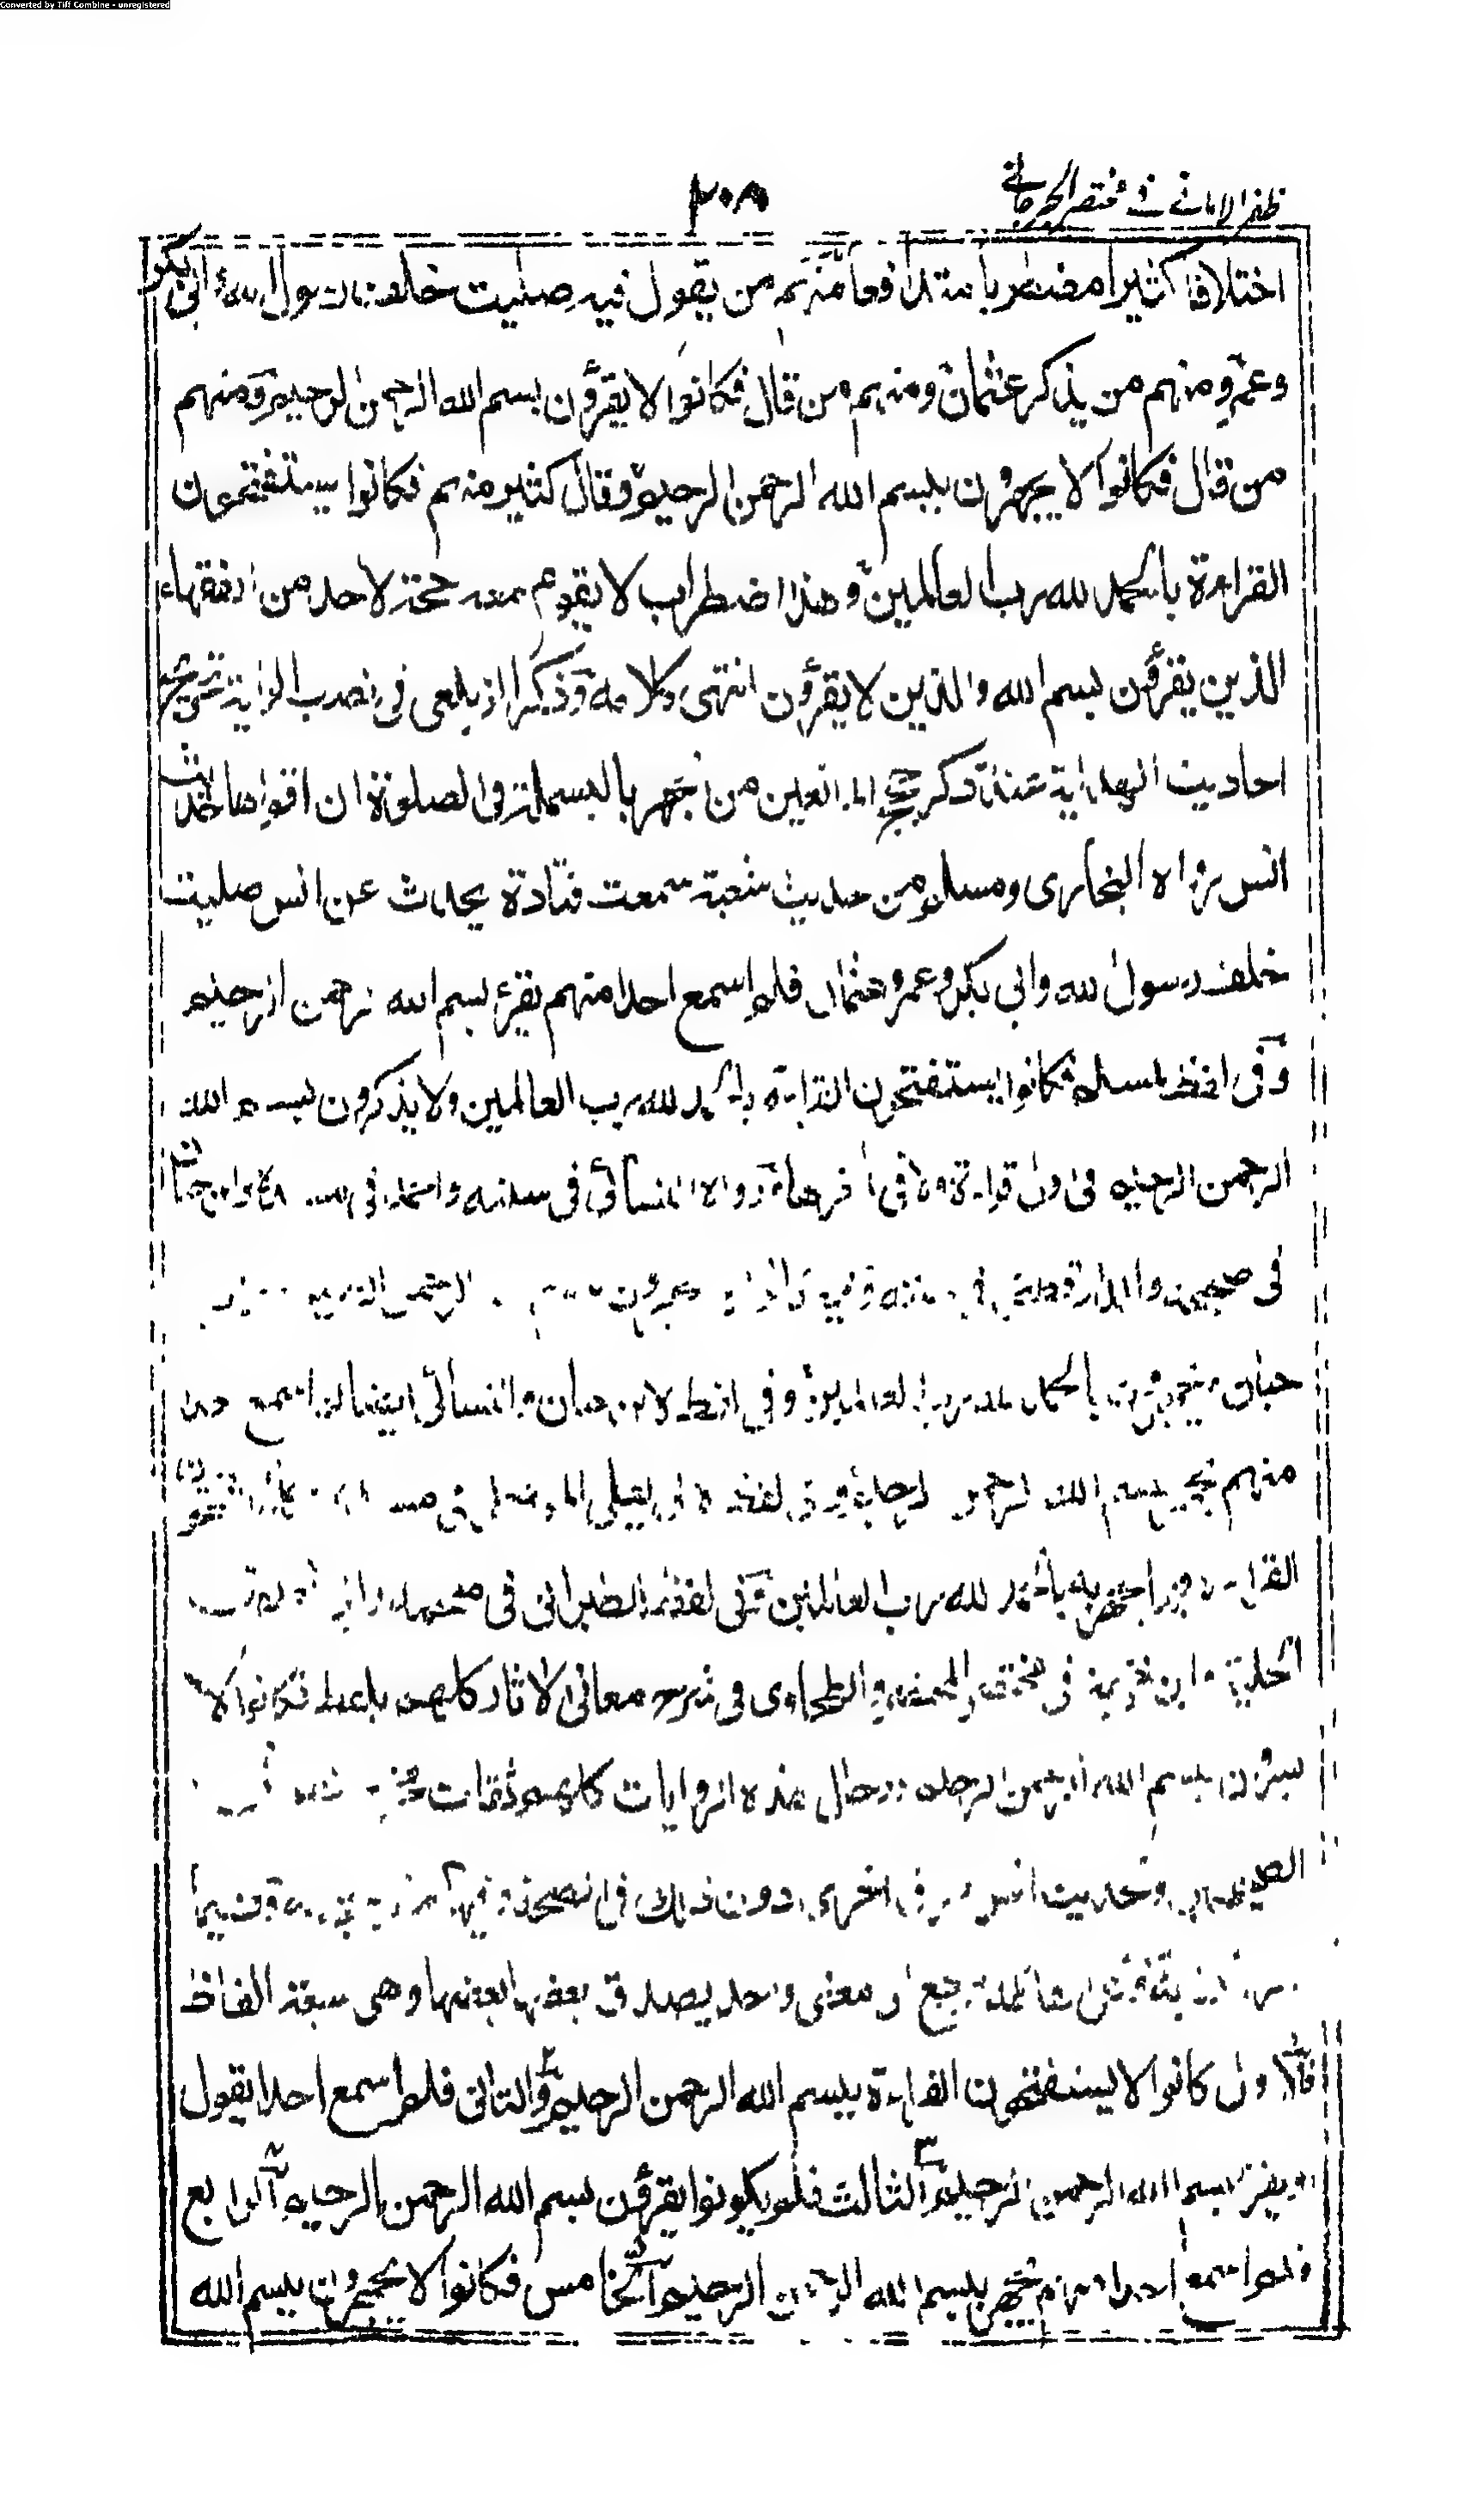 Converted by Tiff Combine - unregistered
ظفر الامانی فی مختصر الجرجانی
٢٠٨
اختلافا كثيرا مضطربا متدافعا منهم من يقول فيه صليت خلف رسول الله وابى بكر
وعمر ومنهم من يذكر عثمان ومنهم من قال فكانوا لا يقرؤن بسم الله الرحمن الرحيم ومنهم
من قال فكانوا لا يجهرون ببسم الله الرحمن الرحيم وقال كثير منهم فكانوا يستفتحون
القراءة بالحمد لله رب العالمين وهذا اضطراب لا يقوم معه حجة لاحد من الفقهاء
الذين يقرؤن بسم الله والذين لا يقرؤن انتهى كلامه وذكر الزيلعى فى نصب الراية تخريج
احاديث الهداية عند ذكر حجج المانعين من جهر بالبسملة فى الصلوة ان اقواها حديث
انس رواه البخارى ومسلم من حديث شعبة سمعت قتادة يحدث عن انس صليت
خلف رسول لله وابى بكر وعمر وعثمان فلم اسمع احدا منهم يقرء بسم الله الرحمن الرحيم
وفى لفظ لمسلم فكانوا يستفتحون القراءة بالحمد لله رب العالمين ولا يذكرون بسم الله
الرحمن الرحيم فى اول قراءة ولا فى اخرها ورواه النسائى فى سننه واحمد فى مسنده وابن حبان
فى صحيحه والدارقطنى فى سننه وقالوا فيه
حبان ويجهرون بالحمد لله رب العالمين وفى لفظ لابن حبان والنسائى ايضا لم اسمع احدا
منهم يجهر ببسم الله الرحمن الرحيم وفى لفظ لابى يعلى الموصلى فى مسنده
القراءة فيما يجهر به بالحمد لله رب العالمين وفى لفظ للطبرانى فى معجمه وابى نعيم فى
الحلية وابن خزيمة فى مختصر المختصر والطحاوى فى شرح معانى الاثار كلهم بلفظ فكانوا لا
يسرون ببسم الله الرحمن الرحيم ورجال هذه الروايات كلهم ثقات
وحديث انس اخرى دون ذلك فى الصحة وفيها
يرجع الى معنى واحد يصدق بعضها بعضها وهى سبعة الفاظ
فالاول كانوا لا يستفتحون القراءة ببسم الله الرحمن الرحيم والثانى فلم اسمع احدا يقول
او يقرء بسم الله الرحمن الرحيم الثالث فلم يكونوا يقرؤن بسم الله الرحمن الرحيم الرابع
فلم اسمع احدا منهم يجهر ببسم الله الرحمن الرحيم الخامس فكانوا لا يجهرون ببسم الله